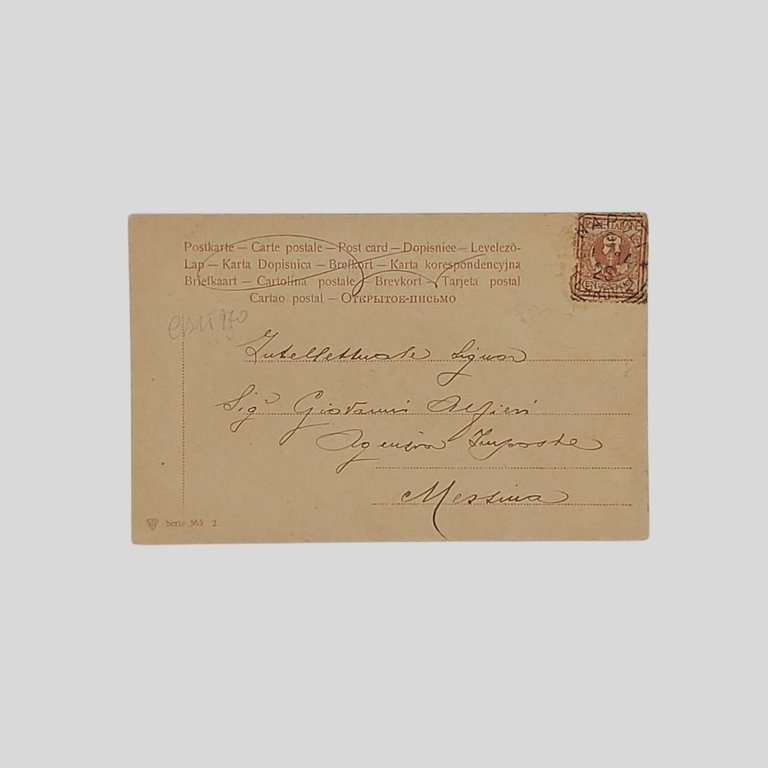 Postkarte — Carte postale — Post card — Dopisnice — Levelezö-
Lap — Karta Dopisnica — Brefkort — Karta korespondencyjna
Briefkaart — Cartolina postale — Brevkort — Tarjeta postal
Cartao postal — Открытое-письмо
Intellettuale Signor
Sigr Giovanni Alfieri
Agenzia Imposte
Messina
Serie 563 2